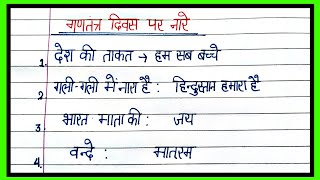 गणतंत्र दिवस पर नारे
1. देश की ताकत → हम सब बच्चे
2. गली-गली में नारा है : हिन्दुस्तान हमारा है
3. भारत माता की : जय
4. वन्दे : मातरम